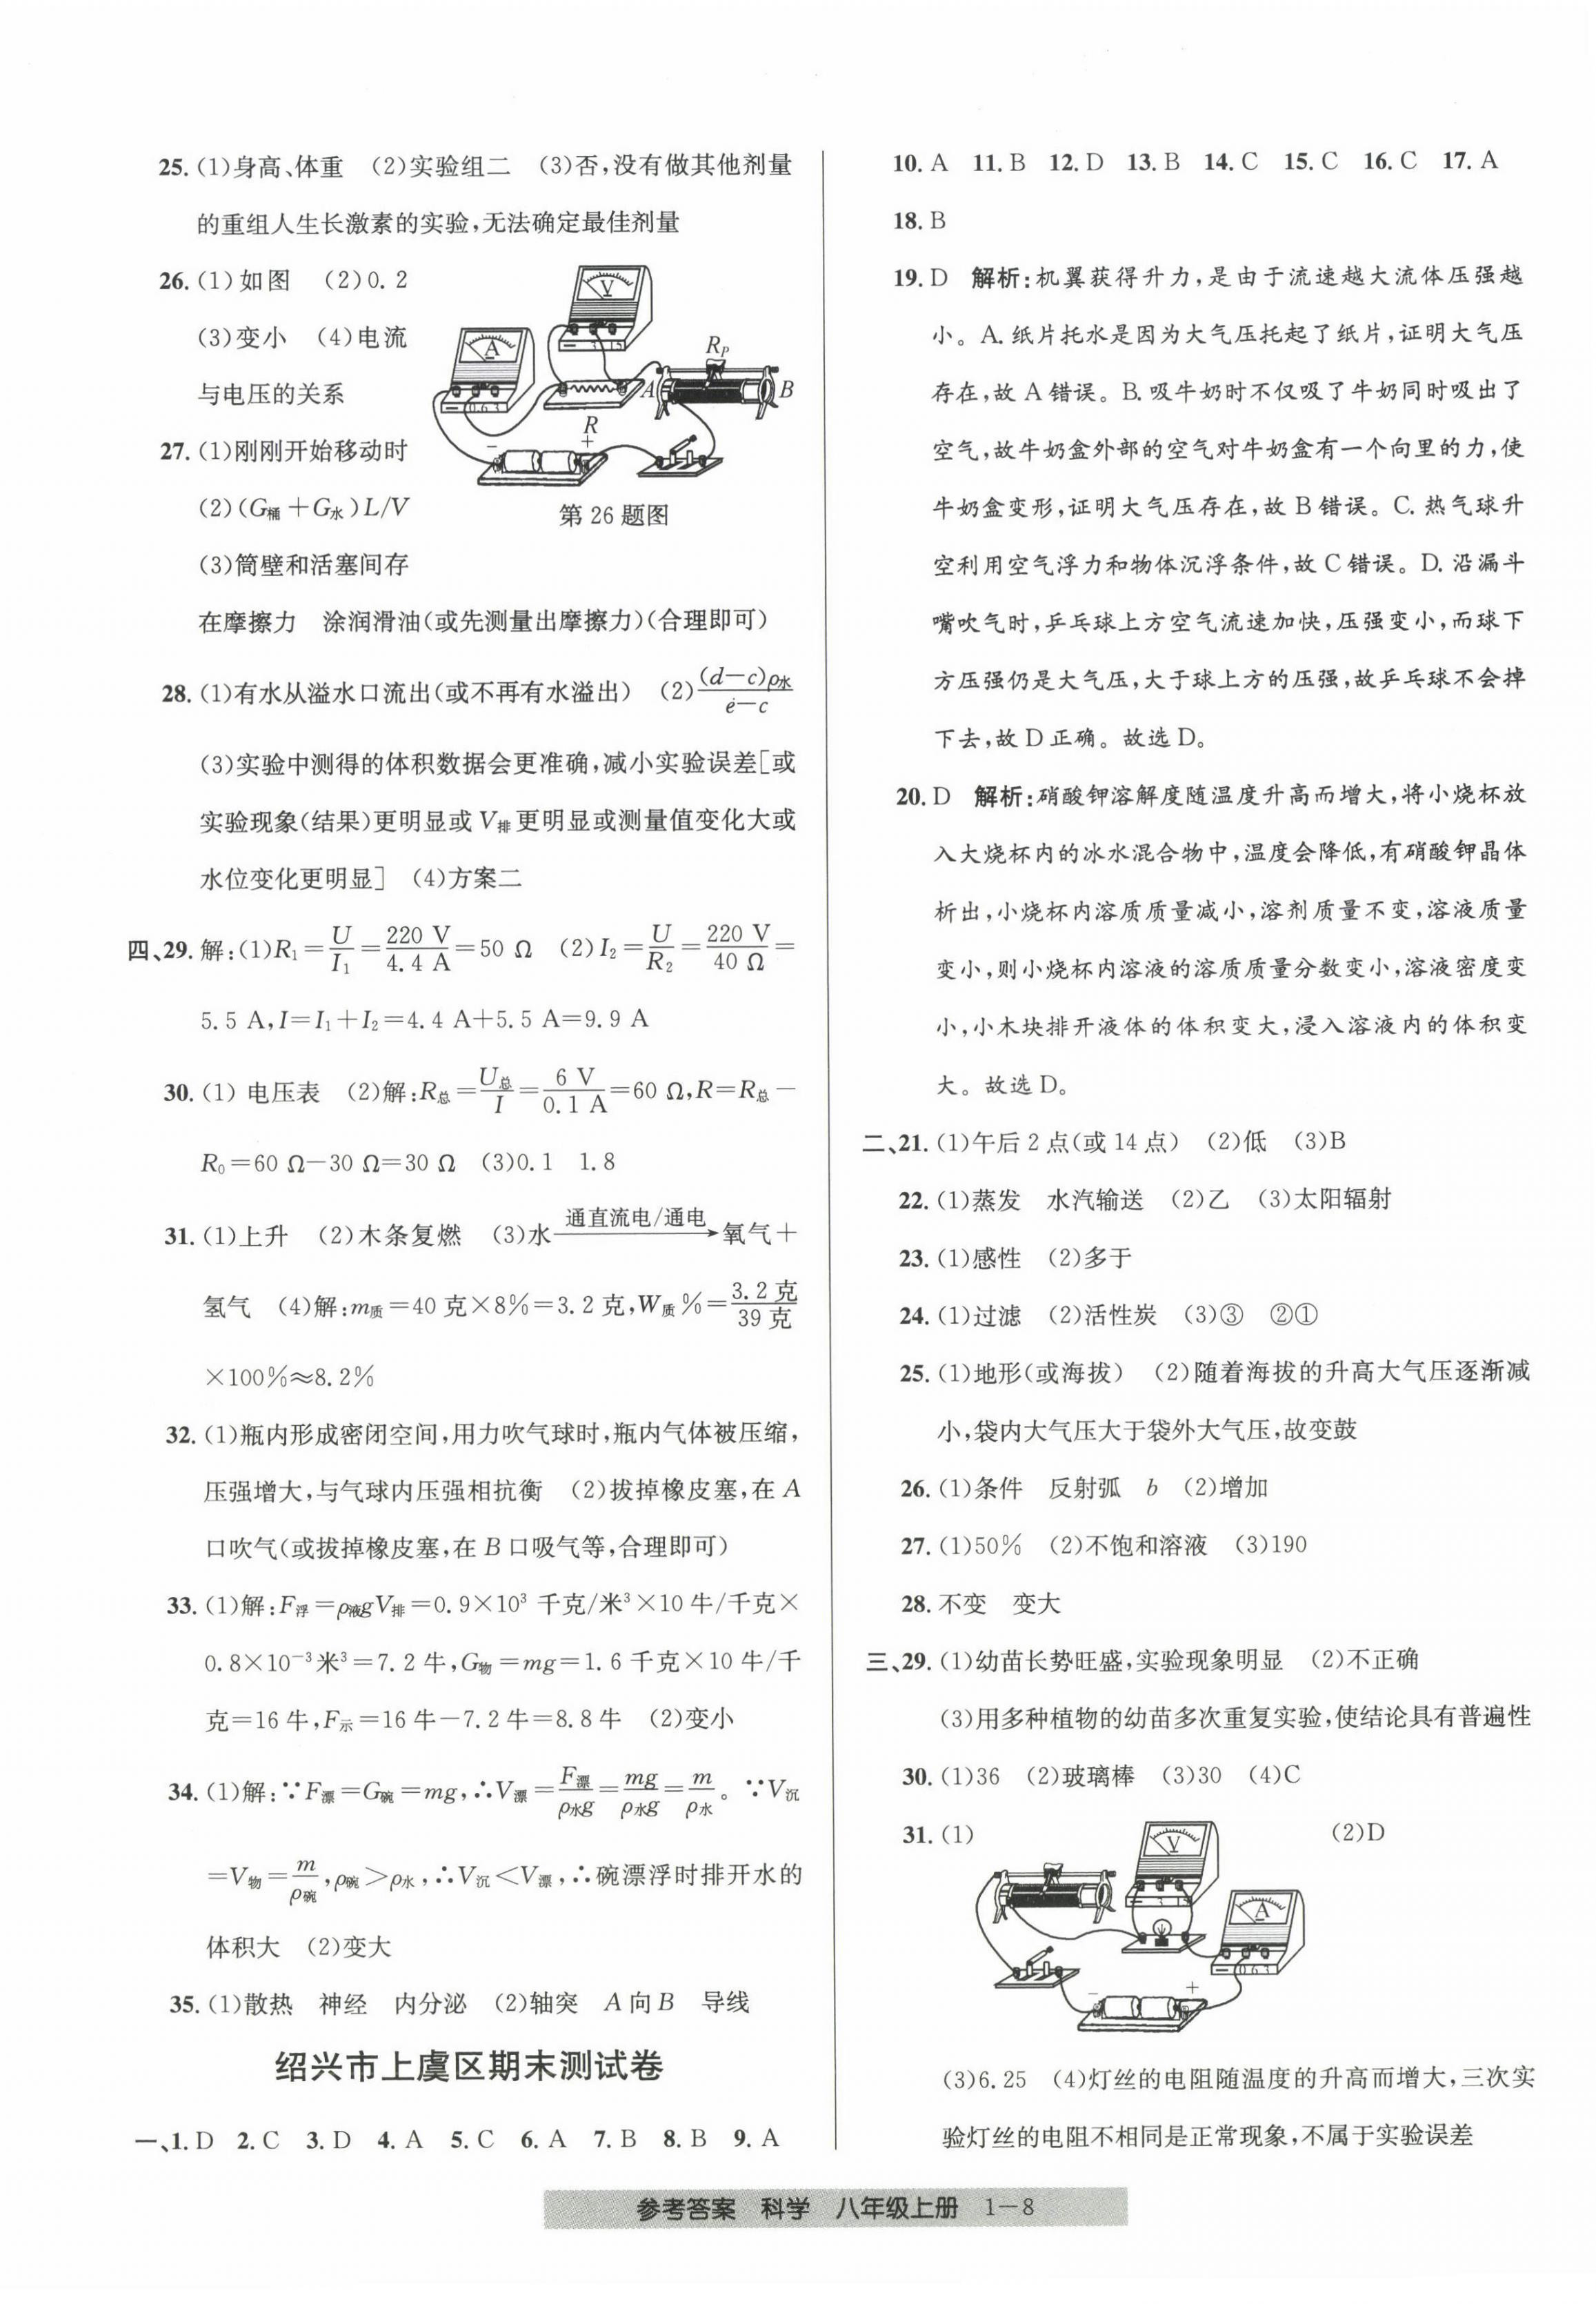 25. (1)身高、体重 (2)实验组二 (3)否,没有做其他剂量
的重组人生长激素的实验,无法确定最佳剂量
26. (1)如图 (2)0.2
(3)变小 (4)电流
与电压的关系
V
3 15
A
0.6 3
R
Rₚ
A
B
－
＋
第26题图
27. (1)刚刚开始移动时
(2)(G桶＋G水)L/V
(3)筒壁和活塞间存
在摩擦力 涂润滑油(或先测量出摩擦力)(合理即可)
28. (1)有水从溢水口流出(或不再有水溢出) (2)(d－c)ρ水/(e－c)
(3)实验中测得的体积数据会更准确,减小实验误差[或
实验现象(结果)更明显或V排更明显或测量值变化大或
水位变化更明显] (4)方案二
四、29. 解:(1)R₁＝U/I₁＝220 V/4.4 A＝50 Ω (2)I₂＝U/R₂＝220 V/40 Ω＝
5.5 A,I＝I₁＋I₂＝4.4 A＋5.5 A＝9.9 A
30. (1)电压表 (2)解:R总＝U总/I＝6 V/0.1 A＝60 Ω,R＝R总－
R₀＝60 Ω－30 Ω＝30 Ω (3)0.1 1.8
31. (1)上升 (2)木条复燃 (3)水 通直流电/通电→ 氧气＋
氢气 (4)解:m质＝40克×8%＝3.2克,W质%＝3.2克/39克
×100%≈8.2%
32. (1)瓶内形成密闭空间,用力吹气球时,瓶内气体被压缩,
压强增大,与气球内压强相抗衡 (2)拔掉橡皮塞,在A
口吹气(或拔掉橡皮塞,在B口吸气等,合理即可)
33. (1)解:F浮＝ρ液gV排＝0.9×10³千克/米³×10牛/千克×
0.8×10⁻³米³＝7.2牛,G物＝mg＝1.6千克×10牛/千
克＝16牛,F示＝16牛－7.2牛＝8.8牛 (2)变小
34. (1)解:∵F漂＝G碗＝mg,∴V漂＝F漂/ρ水g＝mg/ρ水g＝m/ρ水。∵V沉
＝V物＝m/ρ碗,ρ碗＞ρ水,∴V沉＜V漂,∴碗漂浮时排开水的
体积大 (2)变大
35. (1)散热 神经 内分泌 (2)轴突 A向B 导线
绍兴市上虞区期末测试卷
一、1. D 2. C 3. D 4. A 5. C 6. A 7. B 8. B 9. A
10. A 11. B 12. D 13. B 14. C 15. C 16. C 17. A
18. B
19. D 解析:机翼获得升力,是由于流速越大流体压强越
小。A. 纸片托水是因为大气压托起了纸片,证明大气压
存在,故A错误。B. 吸牛奶时不仅吸了牛奶同时吸出了
空气,故牛奶盒外部的空气对牛奶盒有一个向里的力,使
牛奶盒变形,证明大气压存在,故B错误。C. 热气球升
空利用空气浮力和物体沉浮条件,故C错误。D. 沿漏斗
嘴吹气时,乒乓球上方空气流速加快,压强变小,而球下
方压强仍是大气压,大于球上方的压强,故乒乓球不会掉
下去,故D正确。故选D。
20. D 解析:硝酸钾溶解度随温度升高而增大,将小烧杯放
入大烧杯内的冰水混合物中,温度会降低,有硝酸钾晶体
析出,小烧杯内溶质质量减小,溶剂质量不变,溶液质量
变小,则小烧杯内溶液的溶质质量分数变小,溶液密度变
小,小木块排开液体的体积变大,浸入溶液内的体积变
大。故选D。
二、21. (1)午后2点(或14点) (2)低 (3)B
22. (1)蒸发 水汽输送 (2)乙 (3)太阳辐射
23. (1)感性 (2)多于
24. (1)过滤 (2)活性炭 (3)③ ②①
25. (1)地形(或海拔) (2)随着海拔的升高大气压逐渐减
小,袋内大气压大于袋外大气压,故变鼓
26. (1)条件 反射弧 b (2)增加
27. (1)50% (2)不饱和溶液 (3)190
28. 不变 变大
三、29. (1)幼苗长势旺盛,实验现象明显 (2)不正确
(3)用多种植物的幼苗多次重复实验,使结论具有普遍性
30. (1)36 (2)玻璃棒 (3)30 (4)C
31. (1)
(2)D
V
3 15
A
0.6 3
－
＋
(3)6.25 (4)灯丝的电阻随温度的升高而增大,三次实
验灯丝的电阻不相同是正常现象,不属于实验误差
参考答案 科学 八年级上册 1－8